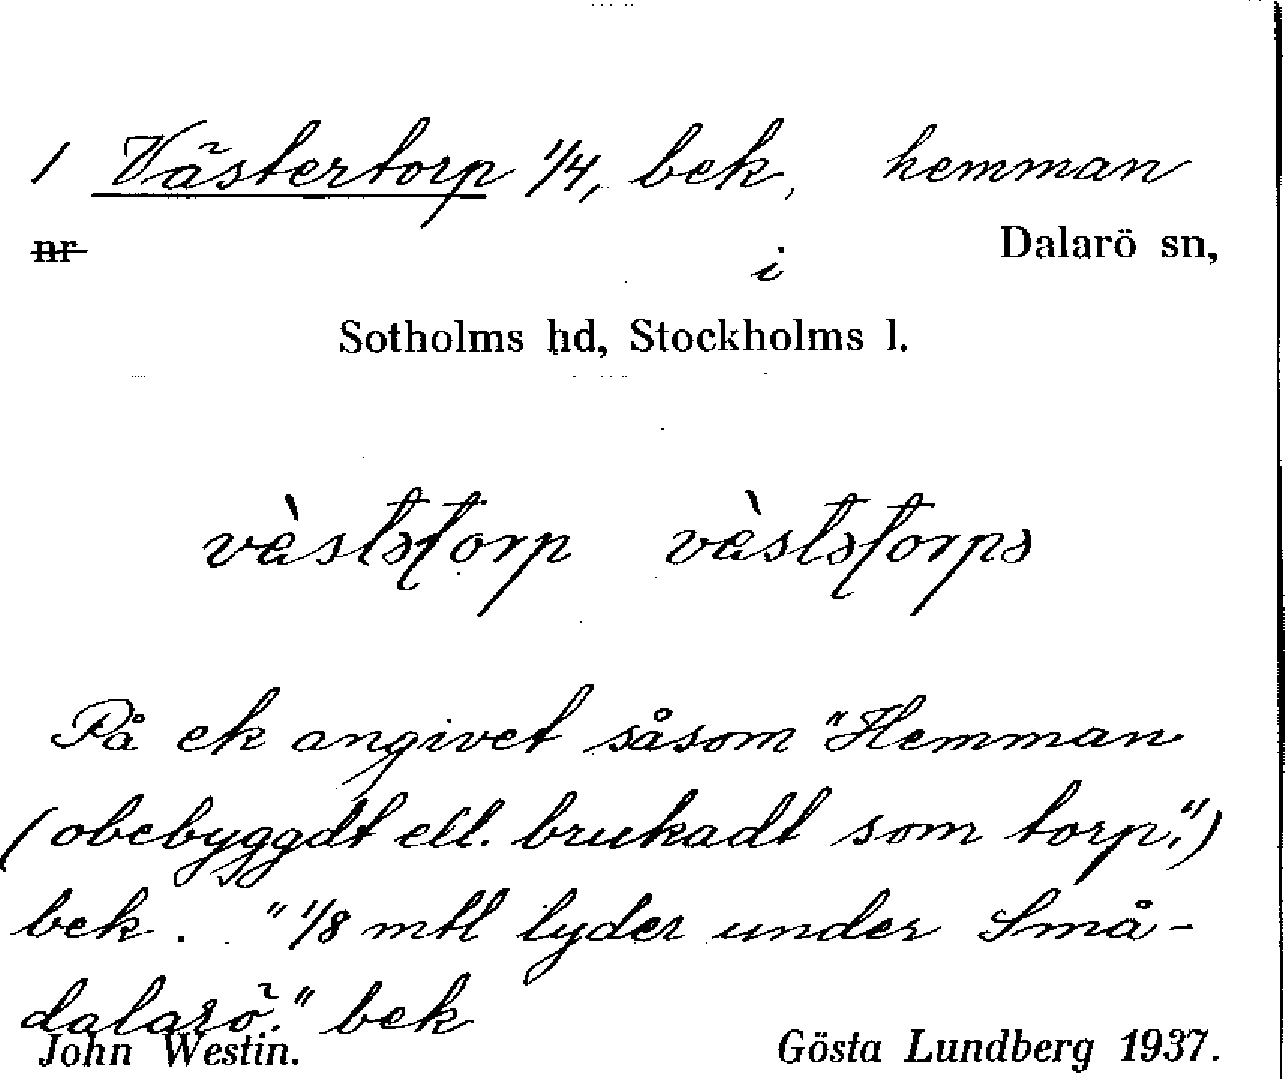 1 Västertorp 1/4, bek, hemman
nr i Dalarö sn,
Sotholms hd, Stockholms l.
vὲstətorp vὲstətorpə
På ek angivet såsom "Hemman
(obebyggdt ell. brukadt som torp".)
bek. "1/8 mtl lyder under Små-
dalarö." bek
John Westin. Gösta Lundberg 1937.